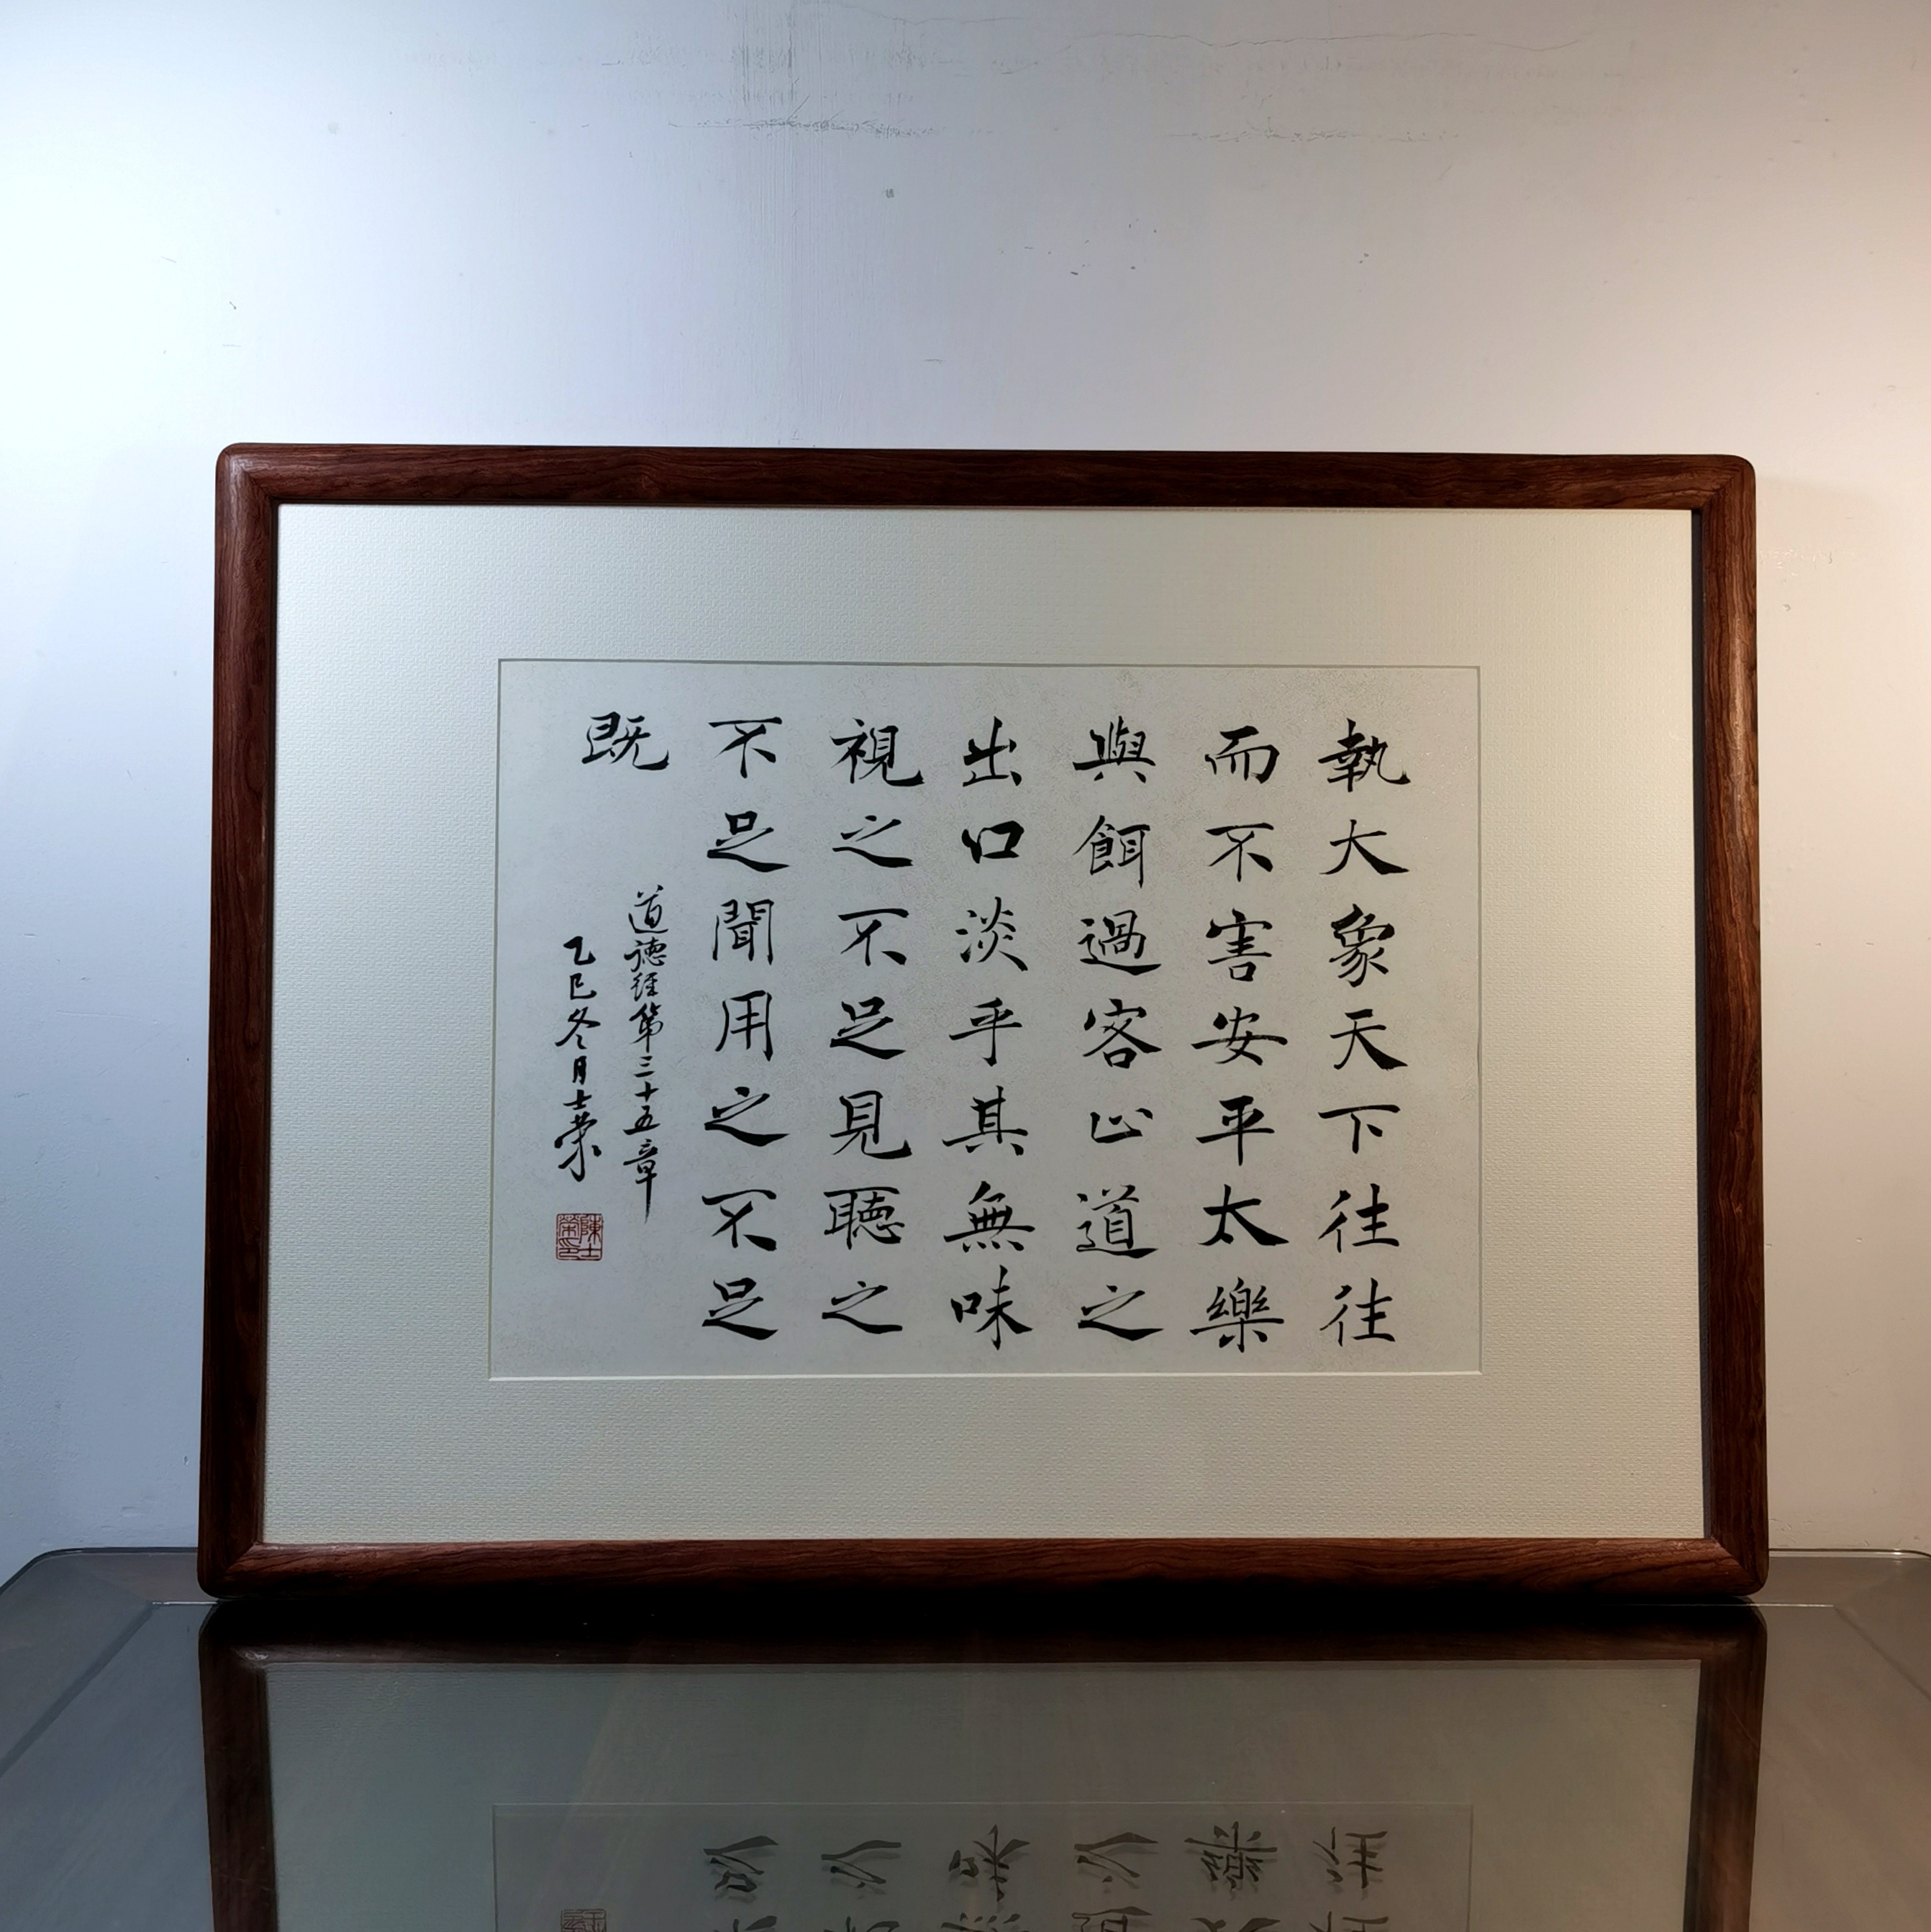 執大象天下往往
而不害安平太樂
與餌過客止道之
出口淡乎其無味
視之不足見聽之
不足聞用之不足
既
道德経第三十五章
乙巳冬月士荣
陳士榮印